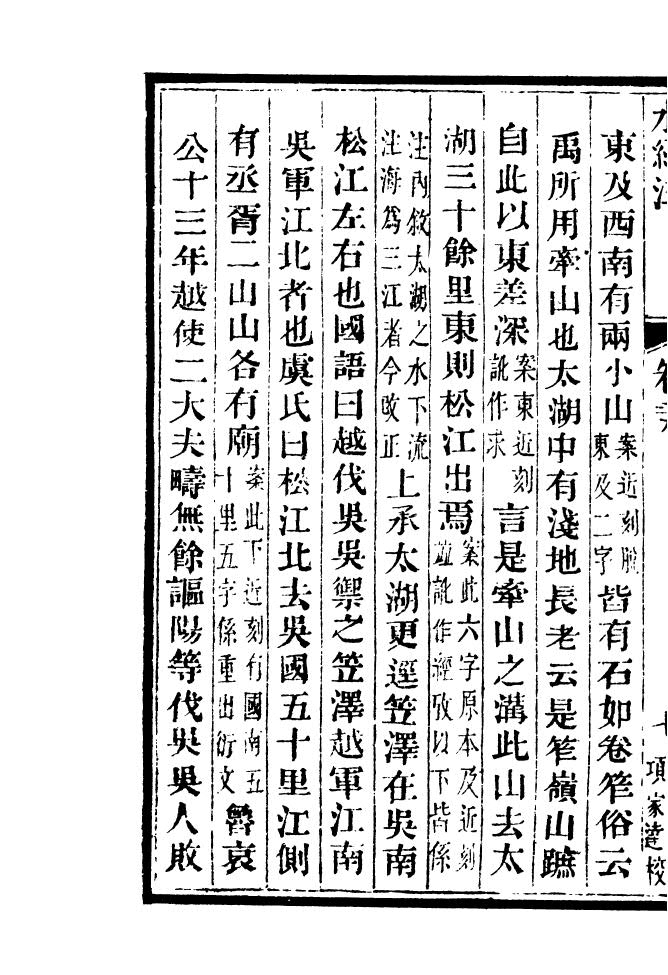 水經注
項家達校
東及西南有兩小山案近刻脫東及二字皆有石如卷笮俗云
禹所用牽山也太湖中有淺地長老云是笮嶺山蹠
自此以東差深案東近刻訛作求言是牽山之溝此山去太
湖三十餘里東則松江出焉案此六字原本及近刻並訛作經攷以下皆係
注內敘太湖之水下流注海爲三江者今改正上承太湖更逕笠澤在吳南
松江左右也國語曰越伐吳吳禦之笠澤越軍江南
吳軍江北者也虞氏曰松江北去吳國五十里江側
有丞胥二山山各有廟案此下近刻有國南五十里五字係重出衍文魯哀
公十三年越使二大夫疇無餘謳陽等伐吳吳人敗